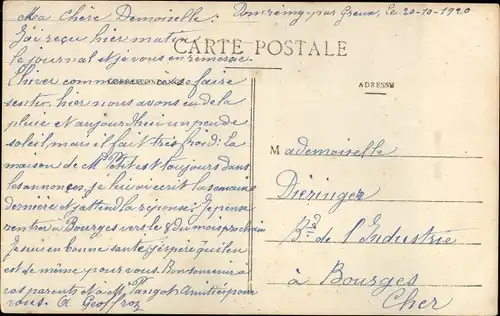 Ma Chère Demoiselle. Domrémy par Greux, le 20-10-1920
J'ai reçu hier matin
le journal et je vous en remercie.
CARTE POSTALE
L'hiver commence à se faire
CORRESPONDANCE
ADRESSE
sentir. hier nous avons eu de la
pluie et aujourd'hui un peu de
soleil, mais il fait très froid: la
maison de Mr Petit est toujours dans
les annonces, je lui ai écrit la semaine
dernière et j'attend la réponse; Je pense
rentrer à Bourges vers le 8 du mois prochain
Je suis en bonne santé, j'espère qu'il en
est de même pour vous. Bon souvenir à
vos parents et à M. Amitiés pour
vous. A Geoffroy
Mademoiselle
Diezinger
Bd de l'Industrie
à Bourges
Cher